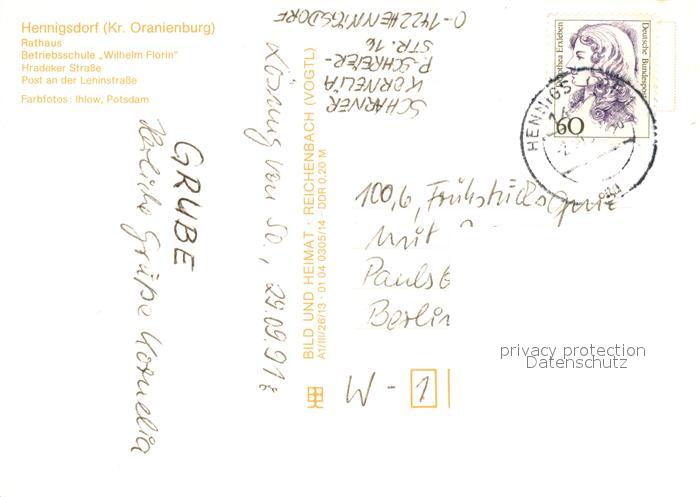 Hennigsdorf (Kr. Oranienburg)
Rathaus
Betriebsschule „Wilhelm Florin"
Hradeker Straße
Post an der Leninstraße
Farbfotos: Ihlow, Potsdam
SCHARNER
KORNELIA
P.-SCHREIER-
STR. 16
O-1422 HENNIGSDORF
Lösung von So., 29.09.91
GRUBE
Herzliche Grüße Kornelia
BILD UND HEIMAT · REICHENBACH (VOGTL)
A1/III/26/13 · 01 04 0305/14 · DDR 0,20 M
Deutsche Bundespost
60
HENNIGS
100,6, Frühstücks
mit
Pauls
Berlin
W - 1
privacy protection
Datenschutz